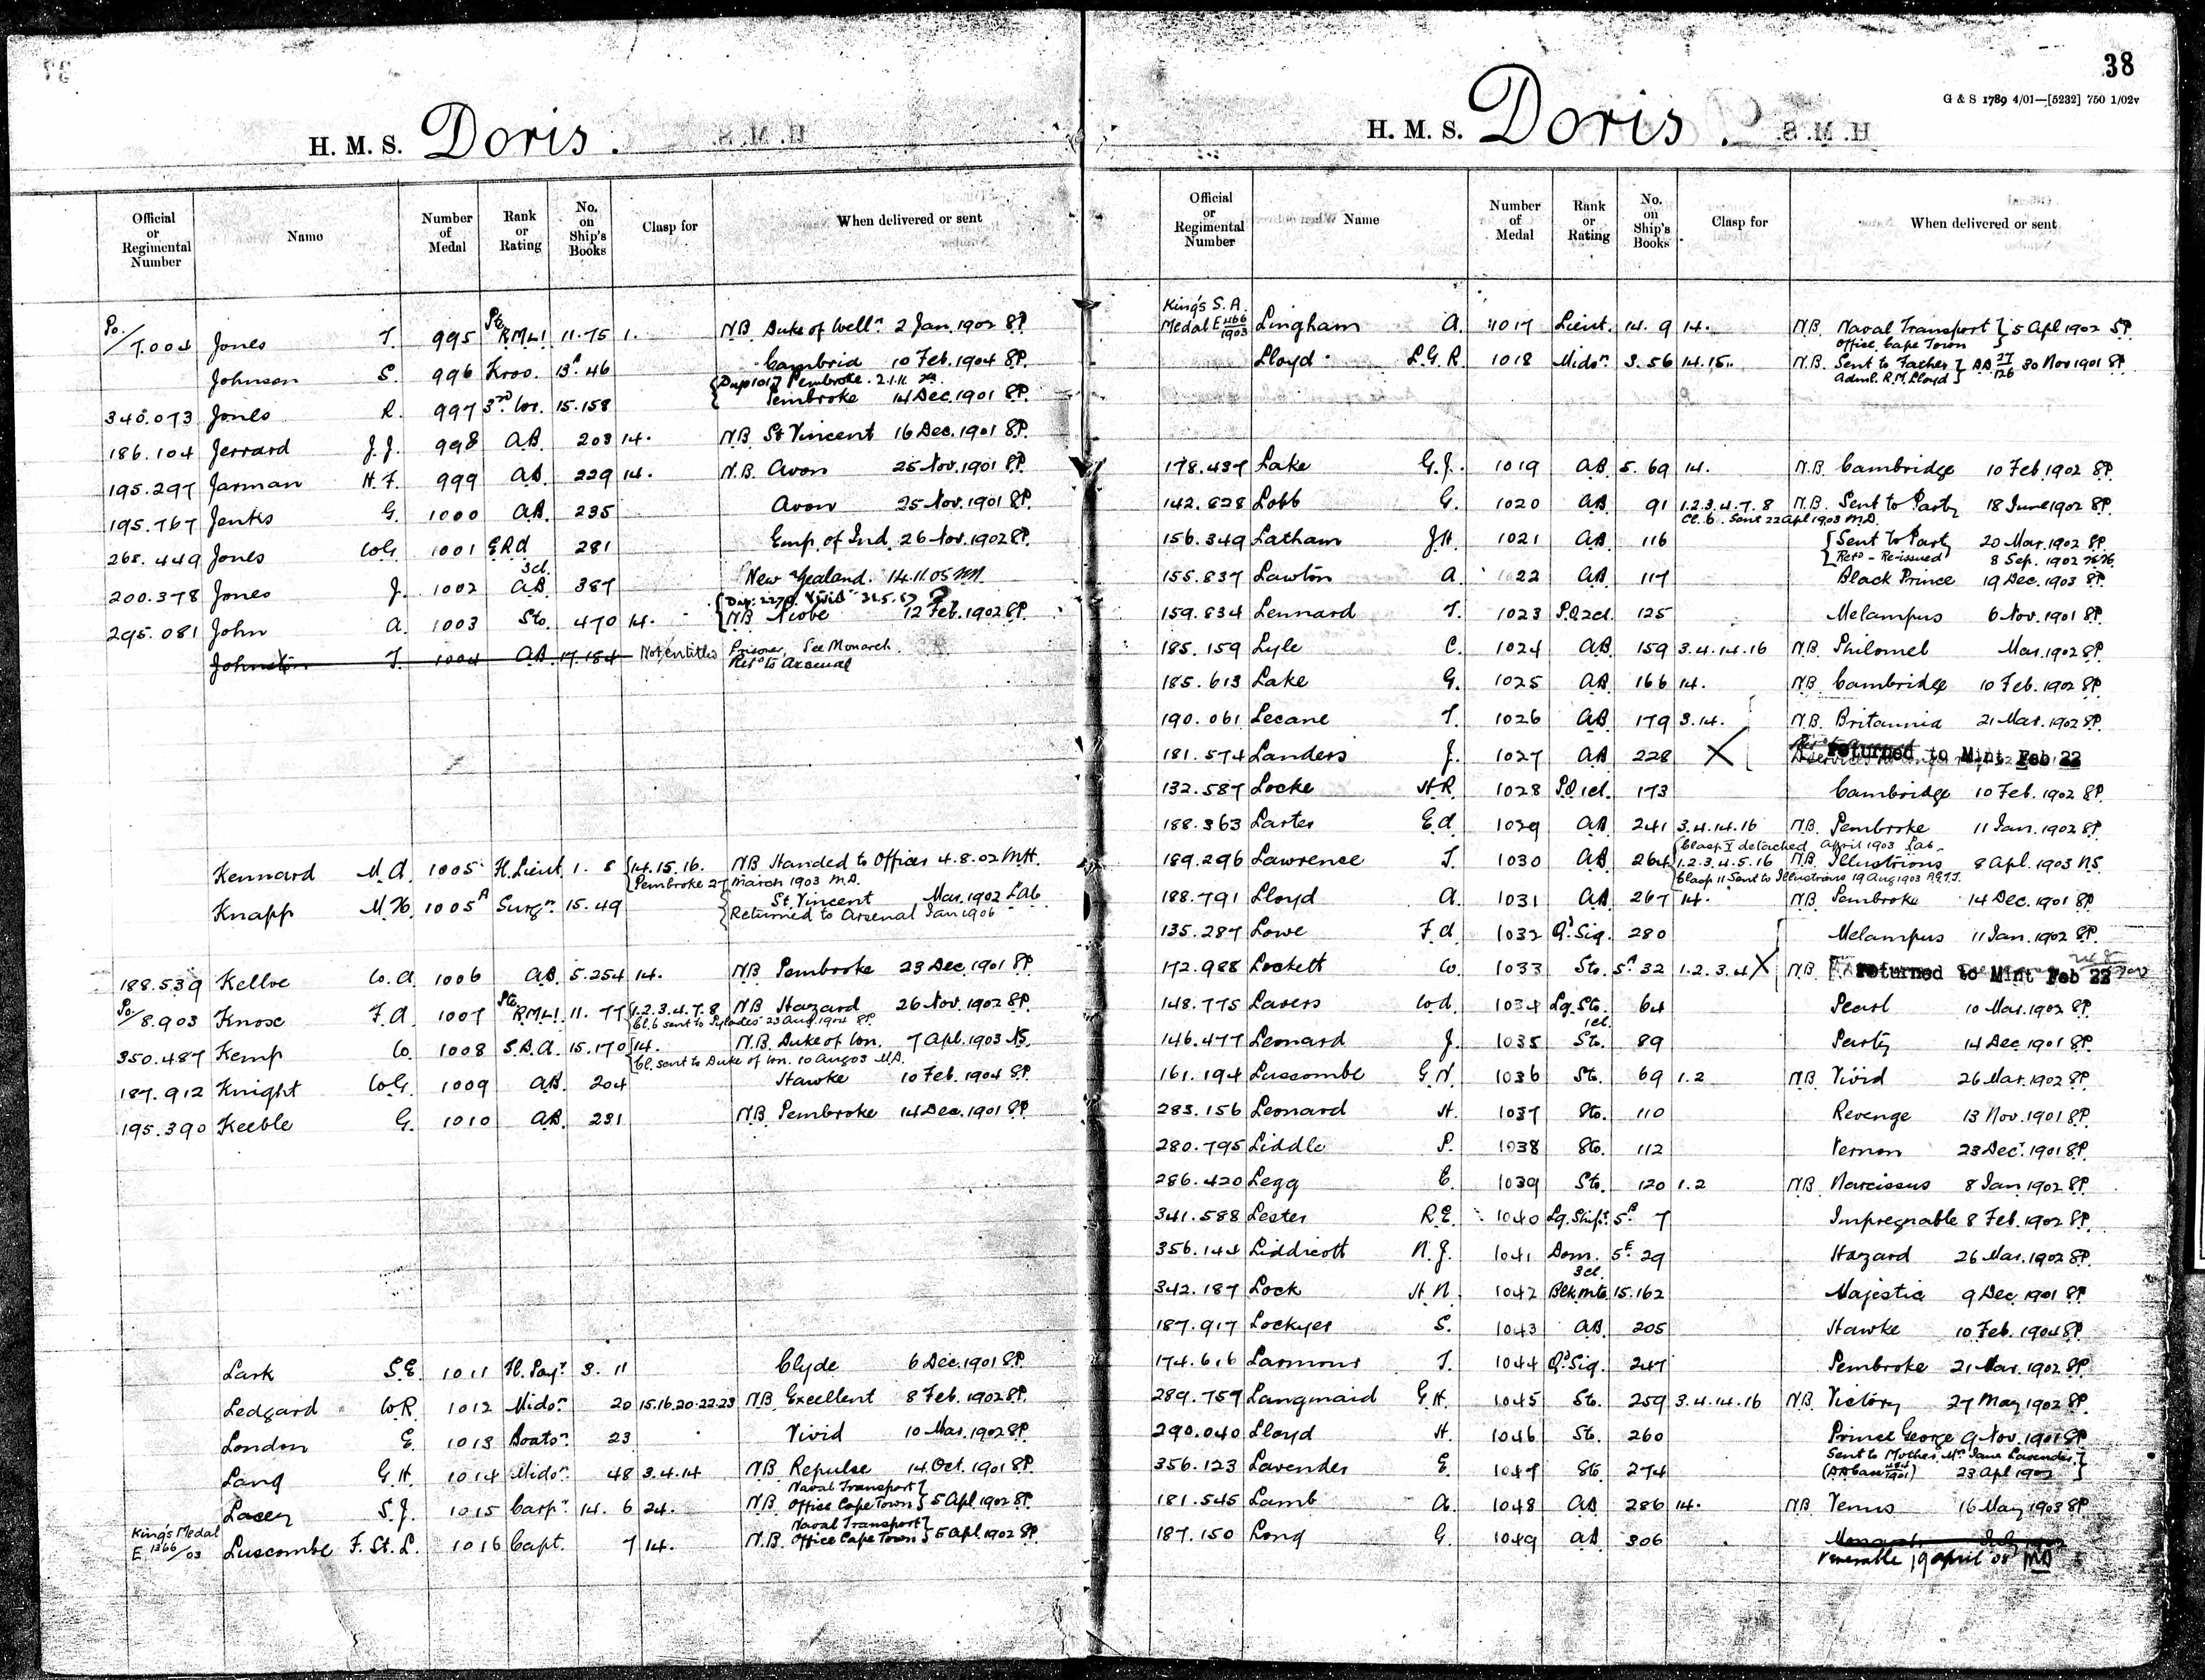 38
G & S 1789 4/01—[5232] 750 1/02v
H. M. S. Doris.
Official or Regimental Number | Name | Number of Medal | Rank or Rating | No. on Ship's Books | Clasp for | When delivered or sent
Po./7.004 Jones T. 995 Pte. R.M.L.I. 11.75 1. N.B. Duke of Well^n 2 Jan. 1902 S.P.
Johnson S. 996 Kroo. 13^A 46 Cambrid 10 Feb. 1904 S.P.
{Dup 1017 Pembroke. 2.1.11
340.073 Jones R. 997 3rd Wr. 15.158 Pembroke 14 Dec. 1901 S.P.
186.104 Jerrard J.J. 998 AB. 203 14. N.B. St Vincent 16 Dec. 1901 S.P.
195.297 Jarman H.F. 999 AB. 229 14. N.B. Avon 25 Nov. 1901 S.P.
195.767 Jenks G. 1000 AB. 235 Avon 25 Nov. 1901 S.P.
268.449 Jones W.G. 1001 E.R.A 3cl. 281 Emp. of Ind. 26 Nov. 1902 S.P.
200.378 Jones J. 1002 AB 387 New Zealand. 14.11.05
295.081 John A. 1003 Sto. 470 14. {N.B. Niobe 12 Feb. 1902 S.P.
Johnston T. 1004 AB. 17.184 Not entitled Prisoner. See Monarch.
Ret^d to Arsenal
Kennard M.A. 1005 Fl. Lieut. 1. 8 {14.15.16. N.B. Handed to Officer 4.8.02 MH.
{Pembroke 27 March 1903 M.A.
Knapp M.H. 1005^A Surg^n 15.49 St. Vincent Mar. 1902 Lab
Returned to Arsenal Jan 1906
188.539 Kellve W.A. 1006 AB. 5.254 14. N.B. Pembroke 23 Dec. 1901 S.P.
Po./8.903 Knox F.A. 1007 Pte. R.M.L.I. 11. 77 {1.2.3.4.7.8 N.B. Hazard 26 Nov. 1902 S.P.
{Cl. 6 sent to Pylades 23 Aug. 1904 S.P.
350.487 Kemp W. 1008 S.B.A. 15.170 {14. N.B. Duke of Wn. 7 Apl. 1903 NS.
{Cl. sent to Duke of Wn. 10 Aug 03 M.A.
187.912 Knight W.G. 1009 AB. 204 Hawke 10 Feb. 1904 S.P.
195.390 Keeble G. 1010 AB. 231 N.B. Pembroke 14 Dec. 1901 S.P.
Lark S.E. 1011 Fl. Pay^r 3. 11 Clyde 6 Dec. 1901 S.P.
Ledgard W.R. 1012 Mids^n 20 15.16.20.22.23 N.B. Excellent 8 Feb. 1902 S.P.
London E. 1013 Boats^n 23 Vivid 10 Mar. 1902 S.P.
Lang G.H. 1014 Mids^n 48 3.4.14 N.B. Repulse 14 Oct. 1901 S.P.
Lacey S.J. 1015 Carp^r 14. 6 24. N.B. Naval Transport Office Cape Town } 5 Apl. 1902 S.P.
King's Medal E 1366/03 Luscombe F. St. L. 1016 Capt. 7 14. N.B. Naval Transport Office Cape Town } 5 Apl 1902 S.P.
H. M. S. Doris.
Official or Regimental Number | Name | Number of Medal | Rank or Rating | No. on Ship's Books | Clasp for | When delivered or sent
King's S.A. Medal E 466/1903 Lingham A. 1017 Lieut. 14. 9 14. N.B. Naval Transport Office Cape Town } 5 Apl 1902 S.P.
Lloyd L.G.R. 1018 Mids^n 3.56 14.15. N.B. Sent to Father Adml. R.M. Lloyd } AA 77/126 30 Nov 1901 S.P.
178.437 Lake G.J. 1019 AB 5. 69 14. N.B. Cambridge 10 Feb 1902 S.P.
142.828 Lobb G. 1020 AB 91 1.2.3.4.7.8 N.B. Sent to Party 18 June 1902 S.P.
Cl. 6. sent 22 Apl 1903 M.A.
156.349 Latham J.H. 1021 AB 116 {Sent to Part 20 Mar. 1902 S.P.
{Ret^d - Re-issued 8 Sep. 1902
155.837 Lawton A. 1022 AB 117 Black Prince 19 Dec. 1903 S.P.
159.834 Lennard T. 1023 P.O.2cl. 125 Melampus 6 Nov. 1901 S.P.
185.159 Lyle C. 1024 AB. 159 3.4.14.16 N.B. Philomel Mar. 1902 S.P.
185.613 Lake G. 1025 AB. 166 14. N.B. Cambridge 10 Feb. 1902 S.P.
190.061 Lecane T. 1026 AB 179 3.14. N.B. Britannia 21 Mar. 1902 S.P.
181.574 Landers J. 1027 AB 228 X returned to Mint Feb 22
132.587 Locke H.R. 1028 P.O.1cl. 173 Cambridge 10 Feb. 1902 S.P.
188.363 Larter E.A. 1029 AB 241 3.4.14.16 N.B. Pembroke 11 Jan. 1902 S.P.
{Clasp I detached April 1903 Lab.
189.296 Lawrence T. 1030 AB 264 1.2.3.4.5.16 N.B. Illustrious 8 Apl. 1903 NS.
{Clasp 11 Sent to Illustrious 19 Aug 1903
188.791 Lloyd A. 1031 AB 267 14. N.B. Pembroke 14 Dec. 1901 S.P.
135.287 Lowe F.A. 1032 Q^d Sig. 280 Melampus 11 Jan. 1902 S.P.
172.988 Lockett W. 1033 Sto. 5^A 32 1.2.3.4 X N.B. returned to Mint Feb 22
148.775 Lavers W.A. 1034 Lg. Sto. 1cl. 64 Pearl 10 Mar. 1902 S.P.
146.477 Leonard J. 1035 Sto. 89 Party 14 Dec 1901 S.P.
161.194 Luscombe G.N. 1036 Sto. 69 1.2 N.B. Vivid 26 Mar. 1902 S.P.
283.156 Leonard H. 1037 Sto. 110 Revenge 13 Nov. 1901 S.P.
280.795 Liddle P. 1038 Sto. 112 Vernon 23 Dec^r. 1901 S.P.
286.420 Legg E. 1039 Sto. 120 1.2 N.B. Narcissus 8 Jan. 1902 S.P.
341.588 Lester R.E. 1040 Lg. Ship^t 5^B 7 Impregnable 8 Feb. 1902 S.P.
356.144 Liddicott N.J. 1041 Dom. 3cl. 5^E 29 Hazard 26 Mar. 1902 S.P.
342.187 Lock H.N. 1042 Blk.mte. 15.162 Majestic 9 Dec. 1901 S.P.
187.917 Lockyer S. 1043 AB. 205 Hawke 10 Feb. 1904 S.P.
174.616 Larmour T. 1044 Q^d Sig. 247 Pembroke 21 Mar. 1902 S.P.
289.759 Langmaid G.H. 1045 Sto. 259 3.4.14.16 N.B. Victory 27 May 1902 S.P.
290.040 Lloyd H. 1046 Sto. 260 Prince George 9 Nov. 1901 S.P.
356.123 Lavender E. 1047 Sto. 274 Sent to Mother, Mrs Jane Lavender, 23 Apl 1902
181.545 Lamb A. 1048 AB 286 14. N.B. Venus 16 May 1903 S.P.
187.150 Long G. 1049 AB 306 Monarch July 1902
Venerable 19 April 08 MA